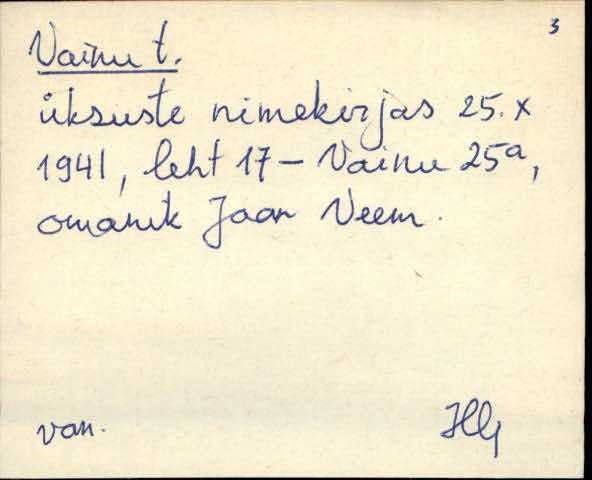 3
Vainu t.
üksuste nimekirjas 25. X
1941, leht 17 – Vainu 25a,
omanik Jaan Veem.
van.